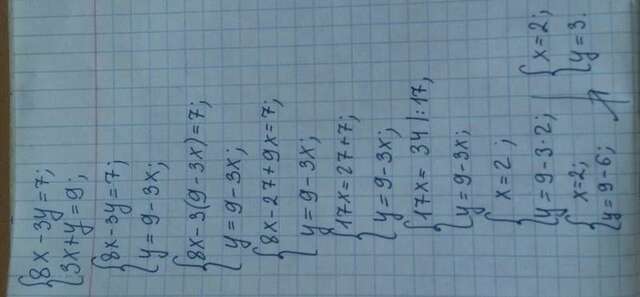 8x-3y=7;
3x+y=9;
8x-3y=7;
y=9-3x;
8x-3(9-3x)=7;
y=9-3x;
8x-27+9x=7;
y=9-3x;
17x=27+7;
y=9-3x;
17x=34|:17;
y=9-3x;
x=2;
y=9-3·2;
x=2;
y=9-6;
x=2;
y=3.